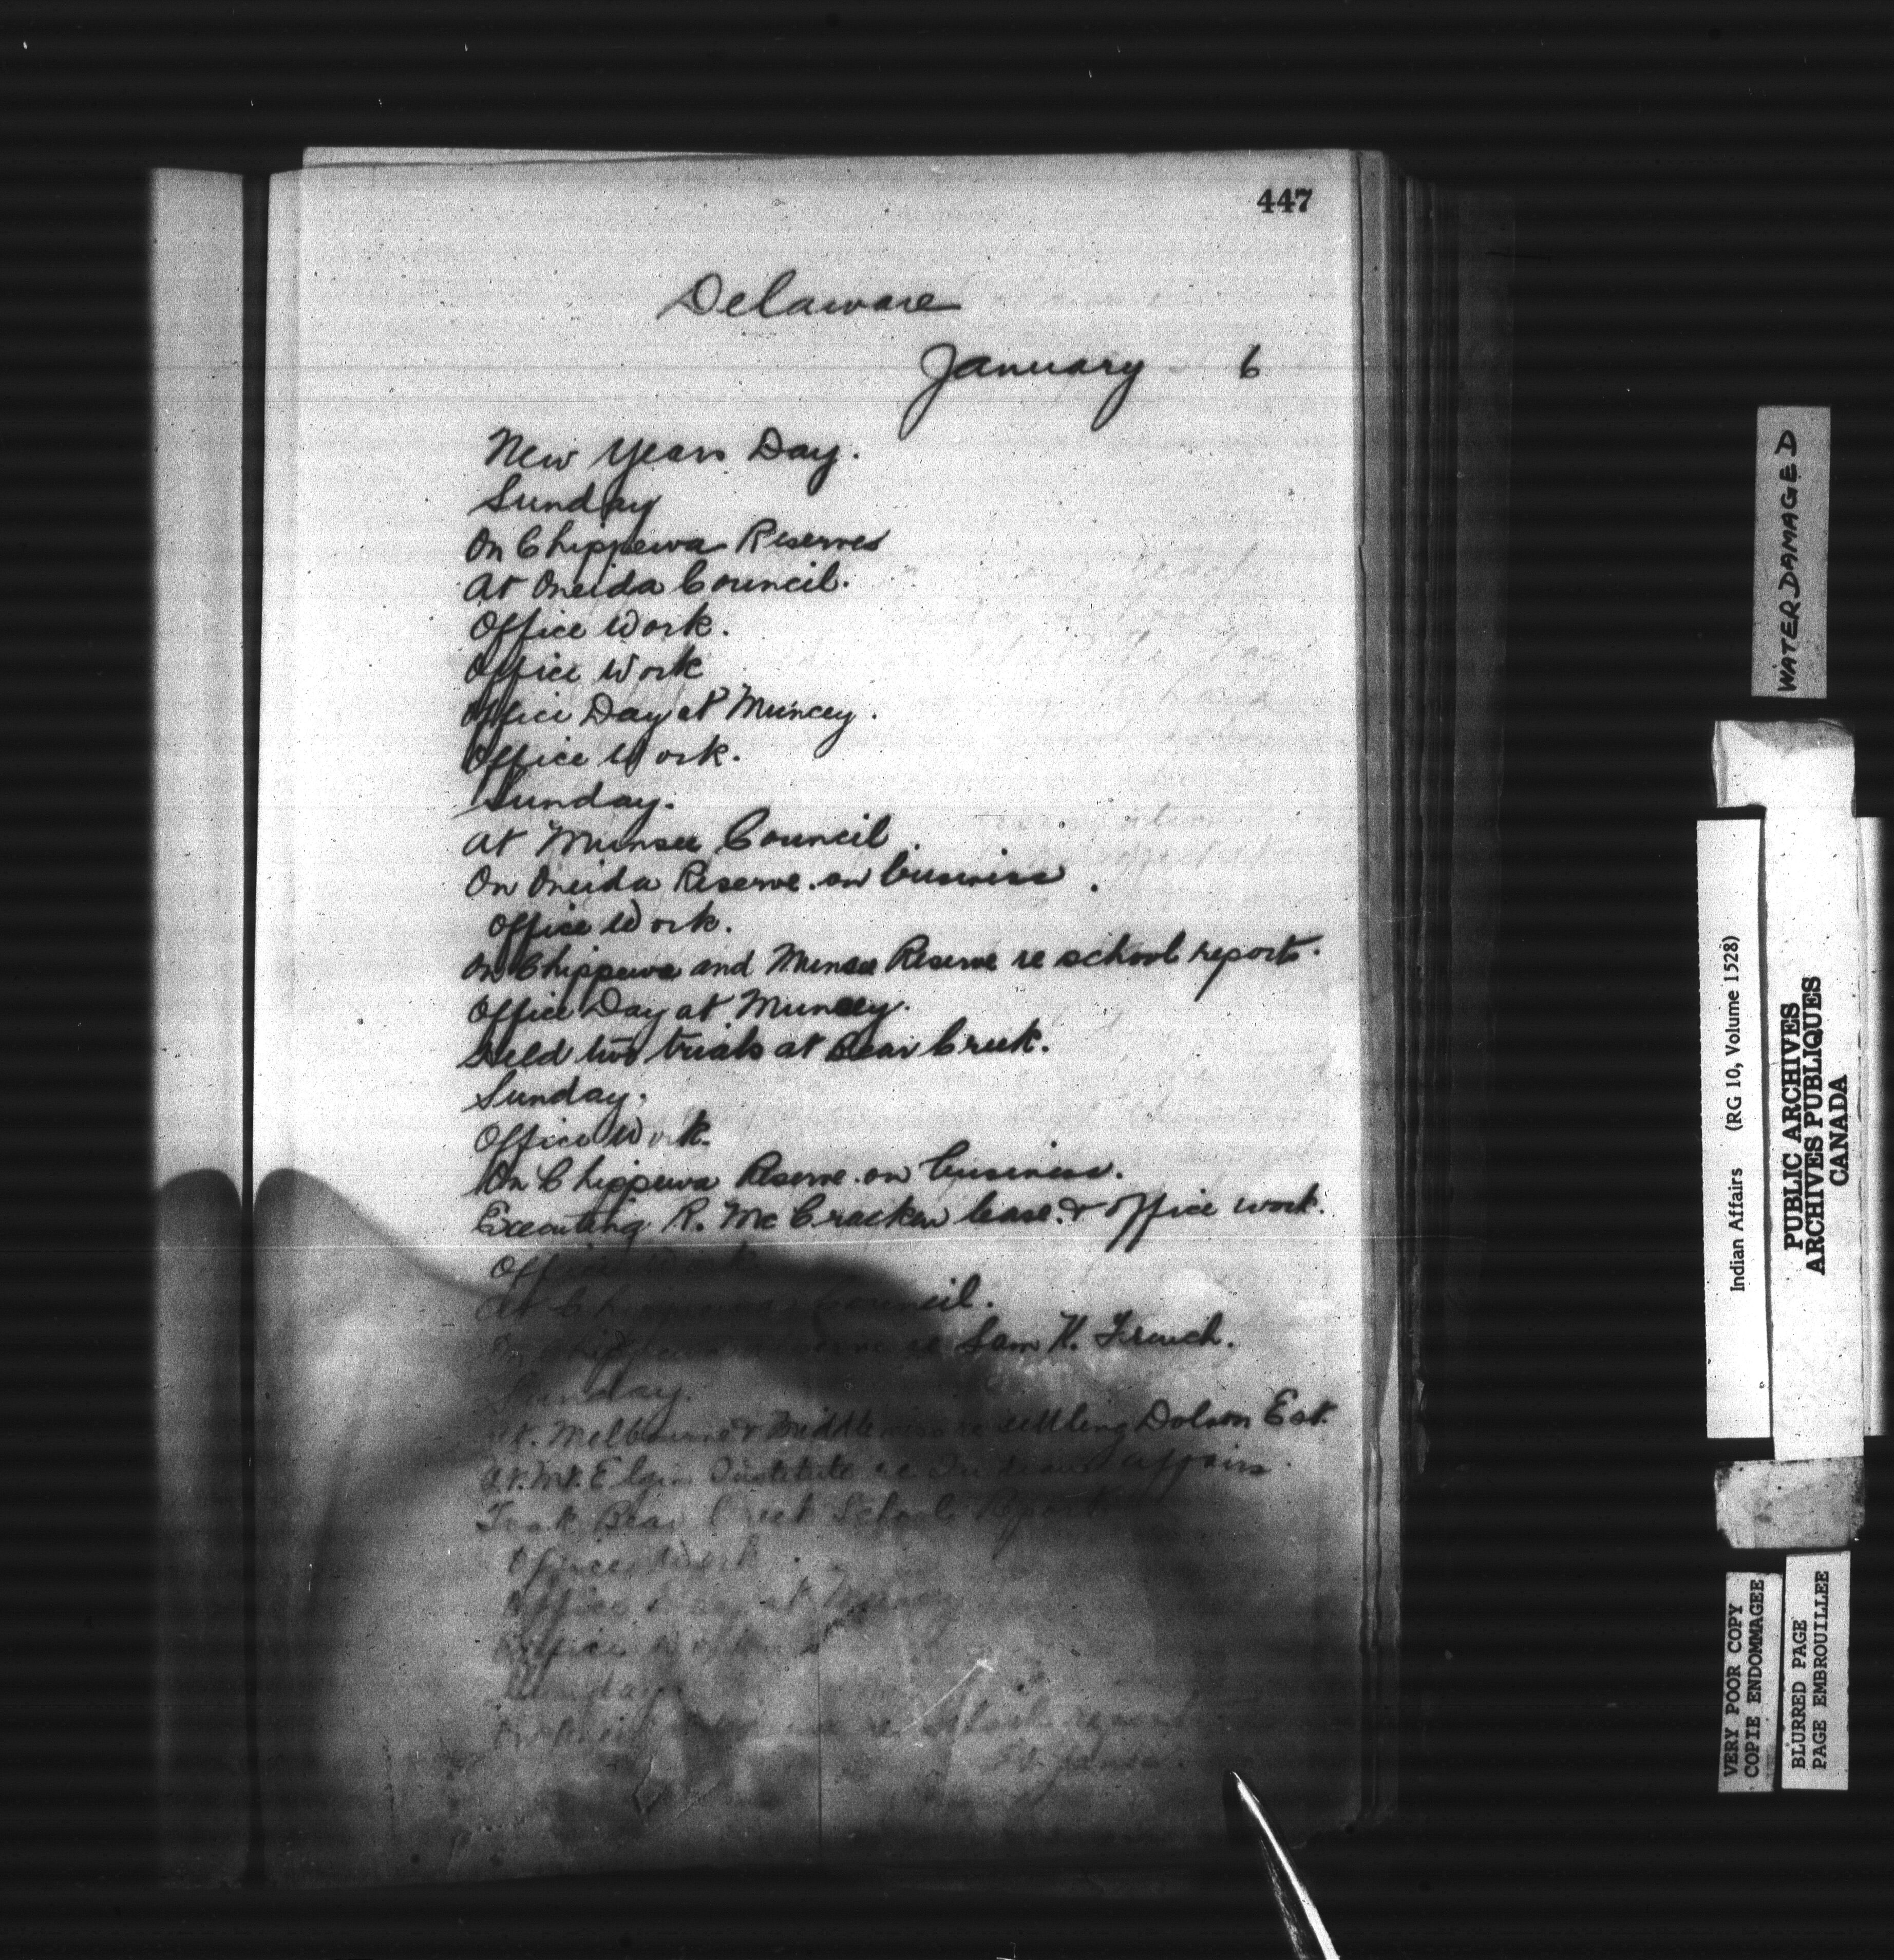 447
Delaware
January 6
New Years Day.
Sunday
On Chippewa Reserves
At Oneida Council.
Office Work.
Office Work
Office Day at Muncey.
Office Work.
Sunday.
At Munsee Council
On Oneida Reserve on business.
Office Work.
On Chippewa and Munsee Reserve re school report.
Office Day at Muncey.
Held two trials at Bear Creek.
Sunday.
Office Work.
On Chippewa Reserve on business.
Executing R. McCracken lease & office work.
Office Work
At Chippewa Council.
On Chippewa Reserve re Sam K. French.
Sunday.
At Melbourne & Middlemiss re settling Dolson Est.
At Mt. Elgin Institute re Indian affairs
Took Bear Creek School Report
Office Work.
Office Day at Muncey
Office Work
Sunday
re School report
WATER DAMAGED
Indian Affairs (RG 10, Volume 1528)
PUBLIC ARCHIVES
ARCHIVES PUBLIQUES
CANADA
VERY POOR COPY
COPIE ENDOMMAGEE
BLURRED PAGE
PAGE EMBROUILLEE